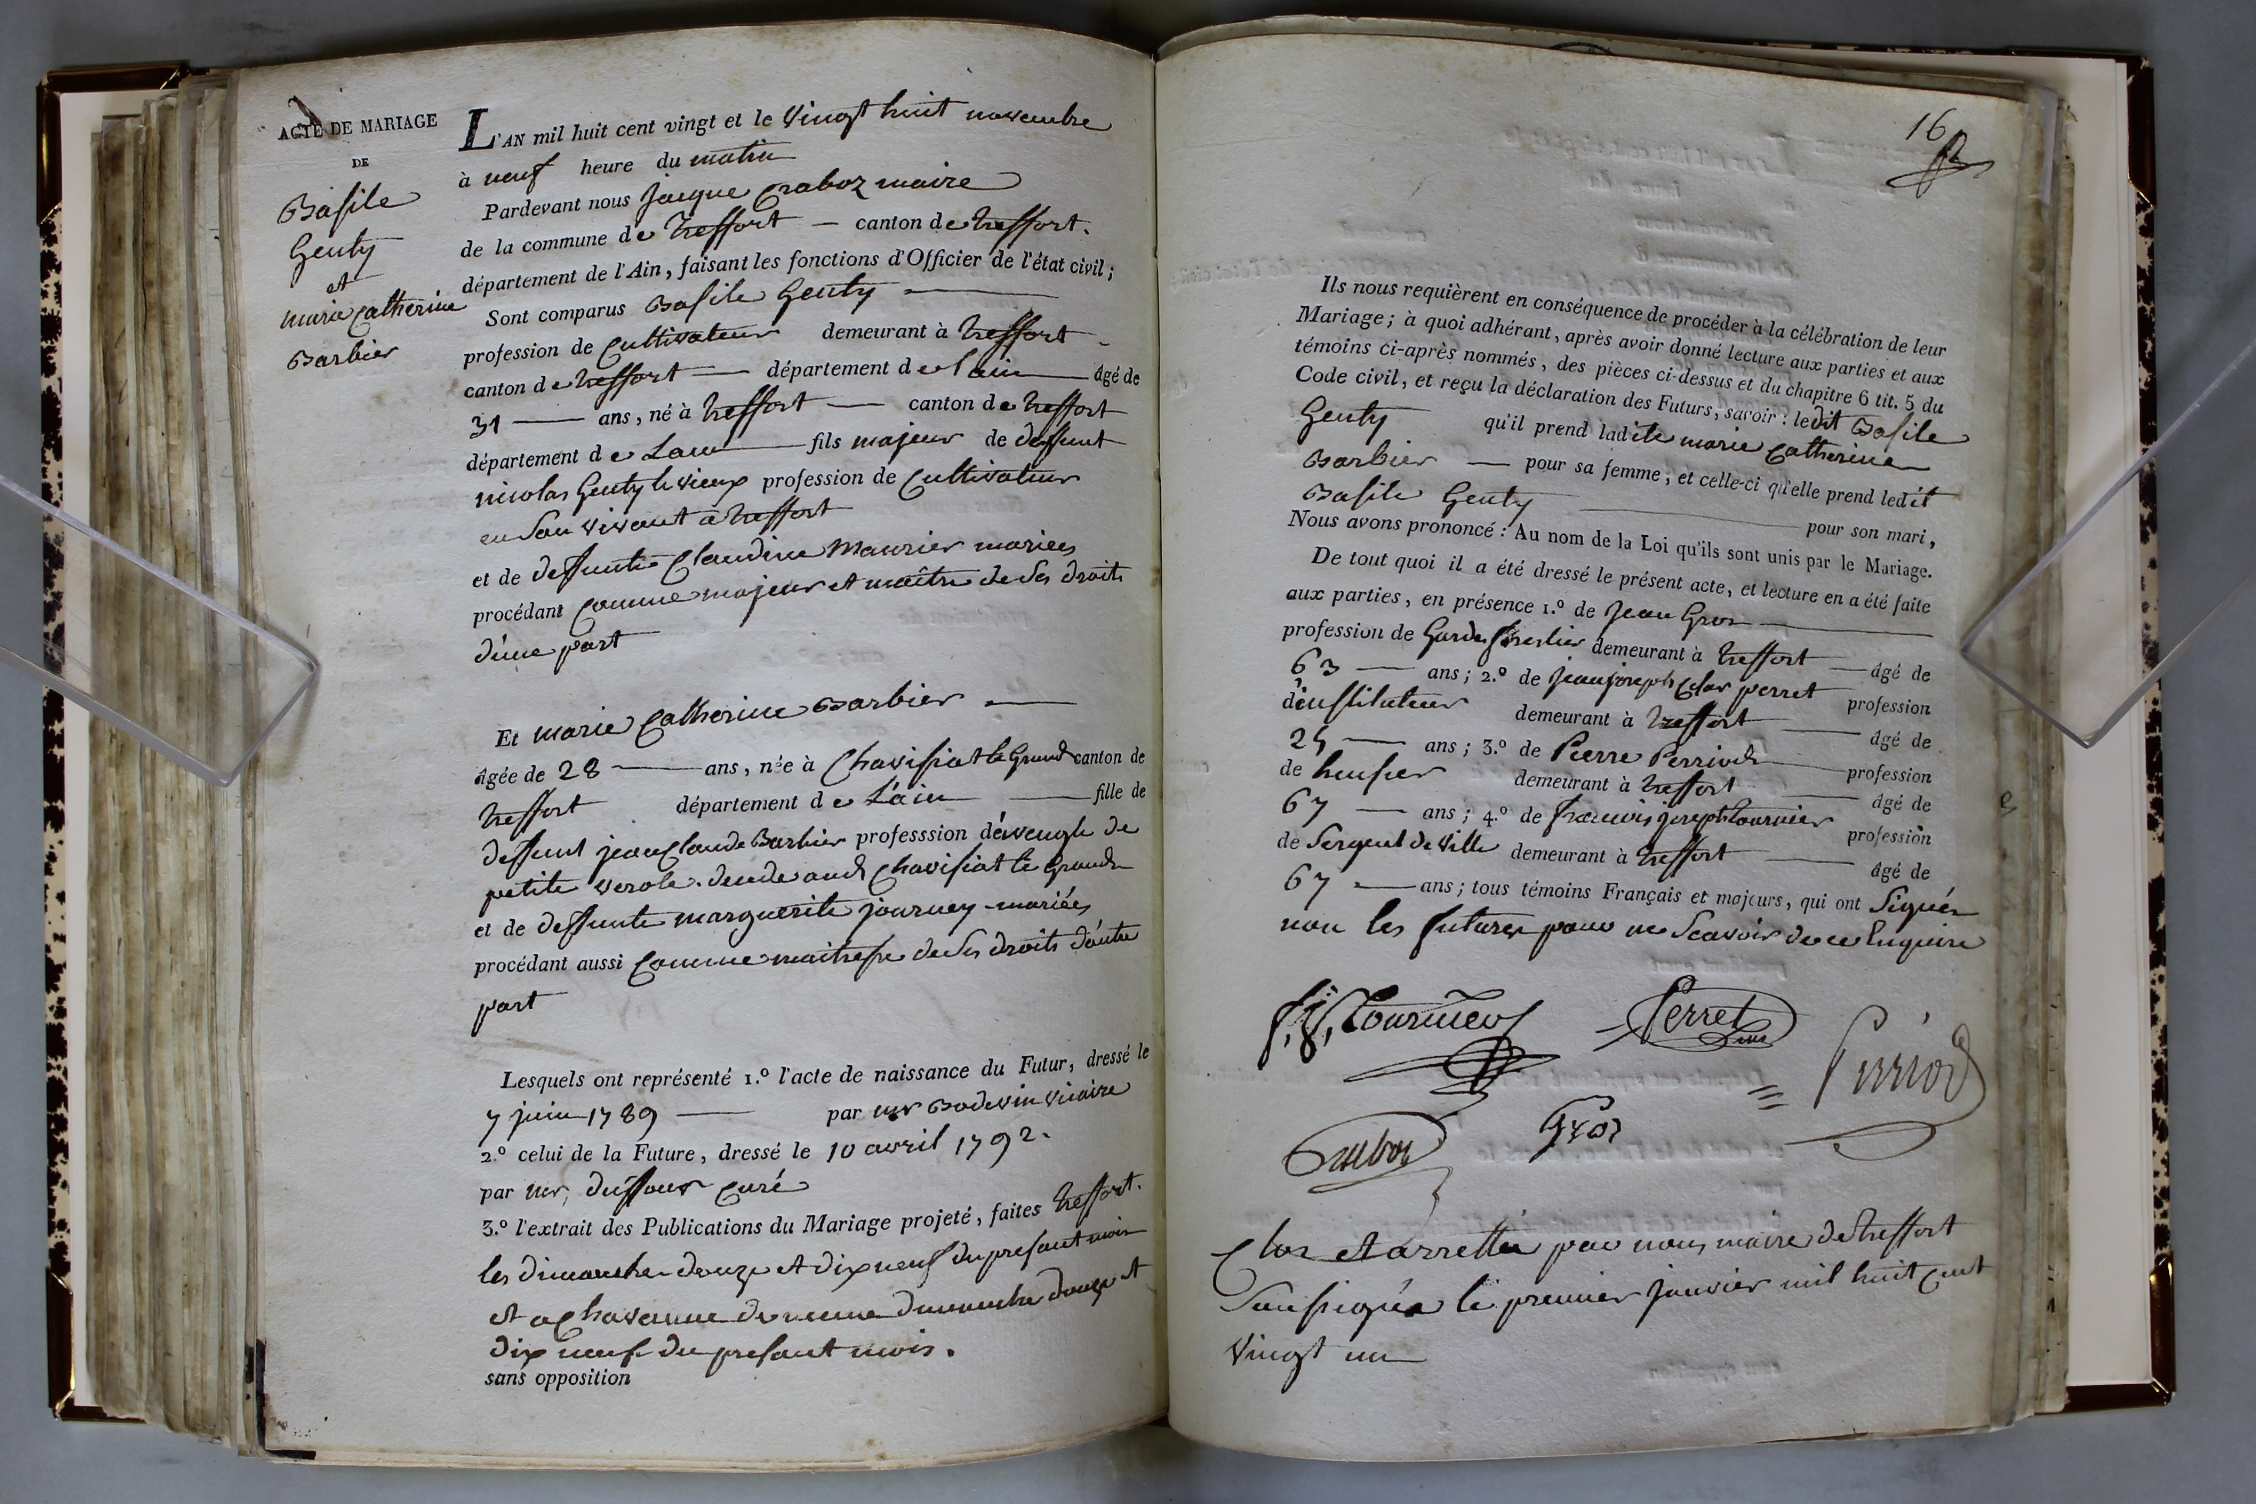 ACTE DE MARIAGE
DE
Basile
Genty
et
marie Catherine
Barbier
L'AN mil huit cent vingt et le Vingt huit novembre
à neuf heure du matin
Pardevant nous Jacque Craboz maire
de la commune de treffort canton de treffort.
département de l'Ain, faisant les fonctions d'Officier de l'état civil;
Sont comparus Basile Genty
profession de Cultivateur demeurant à treffort
canton de treffort département de lain âgé de
31 ans, né à treffort canton de treffort
département de Lain fils majeur de deffunt
nicolas Genty le vieux profession de Cultivateur
en son vivant à treffort
et de deffunte Claudine Maurier mariees
procédant comme majeur et maître de ses droits
d'une part
Et marie Catherine Barbier
âgée de 28 ans, née à Chavisiat le Grand canton de
treffort département de L'ain fille de
deffunt jean Claude Barbier professsion
petite verole Chavisiat le Grand
et de deffunte marguerite journey mariées
procédant aussi comme maitresse de ses droits d'autre
part
Lesquels ont représenté 1.º l'acte de naissance du Futur, dressé le
7 juin 1789 par mr Bodevin vicaire
2.º celui de la Future, dressé le 10 avril 1792.
par mr, duffour curé
3.º l'extrait des Publications du Mariage projeté, faites treffort.
les dimanche douze et dix neuf du presant mois
et a chavanne dimanche douze et
dix neuf du presant mois.
sans opposition
16
Ils nous requièrent en conséquence de procéder à la célébration de leur
Mariage; à quoi adhérant, après avoir donné lecture aux parties et aux
témoins ci-après nommés, des pièces ci-dessus et du chapitre 6 tit. 5 du
Code civil, et reçu la déclaration des Futurs, savoir: ledit Basile
Genty qu'il prend ladite marie Catherine
Barbier pour sa femme; et celle-ci qu'elle prend ledit
Basile Genty pour son mari,
Nous avons prononcé: Au nom de la Loi qu'ils sont unis par le Mariage.
De tout quoi il a été dressé le présent acte, et lecture en a été faite
aux parties, en présence 1.º de Jean Gros
profession de Garde forestier demeurant à treffort âgé de
63 ans; 2.º de jean joseph perret profession
d'institateur demeurant à treffort âgé de
ans; 3.º de Pierre Perriod profession
de huisier demeurant à treffort âgé de
67 ans; 4.º de francois joseph tournier profession
de Sergent de Ville demeurant à treffort âgé de
67 ans; tous témoins Français et majeurs, qui ont Signés
non les futures pour ne Scavoir de ce Enquire
f, j, Tournier
Perret
Perriod
Gros
Craboz
Clos et arretté par nous maire de treffort
Sousigné le premier Janvier mil huit cent
Vingt un